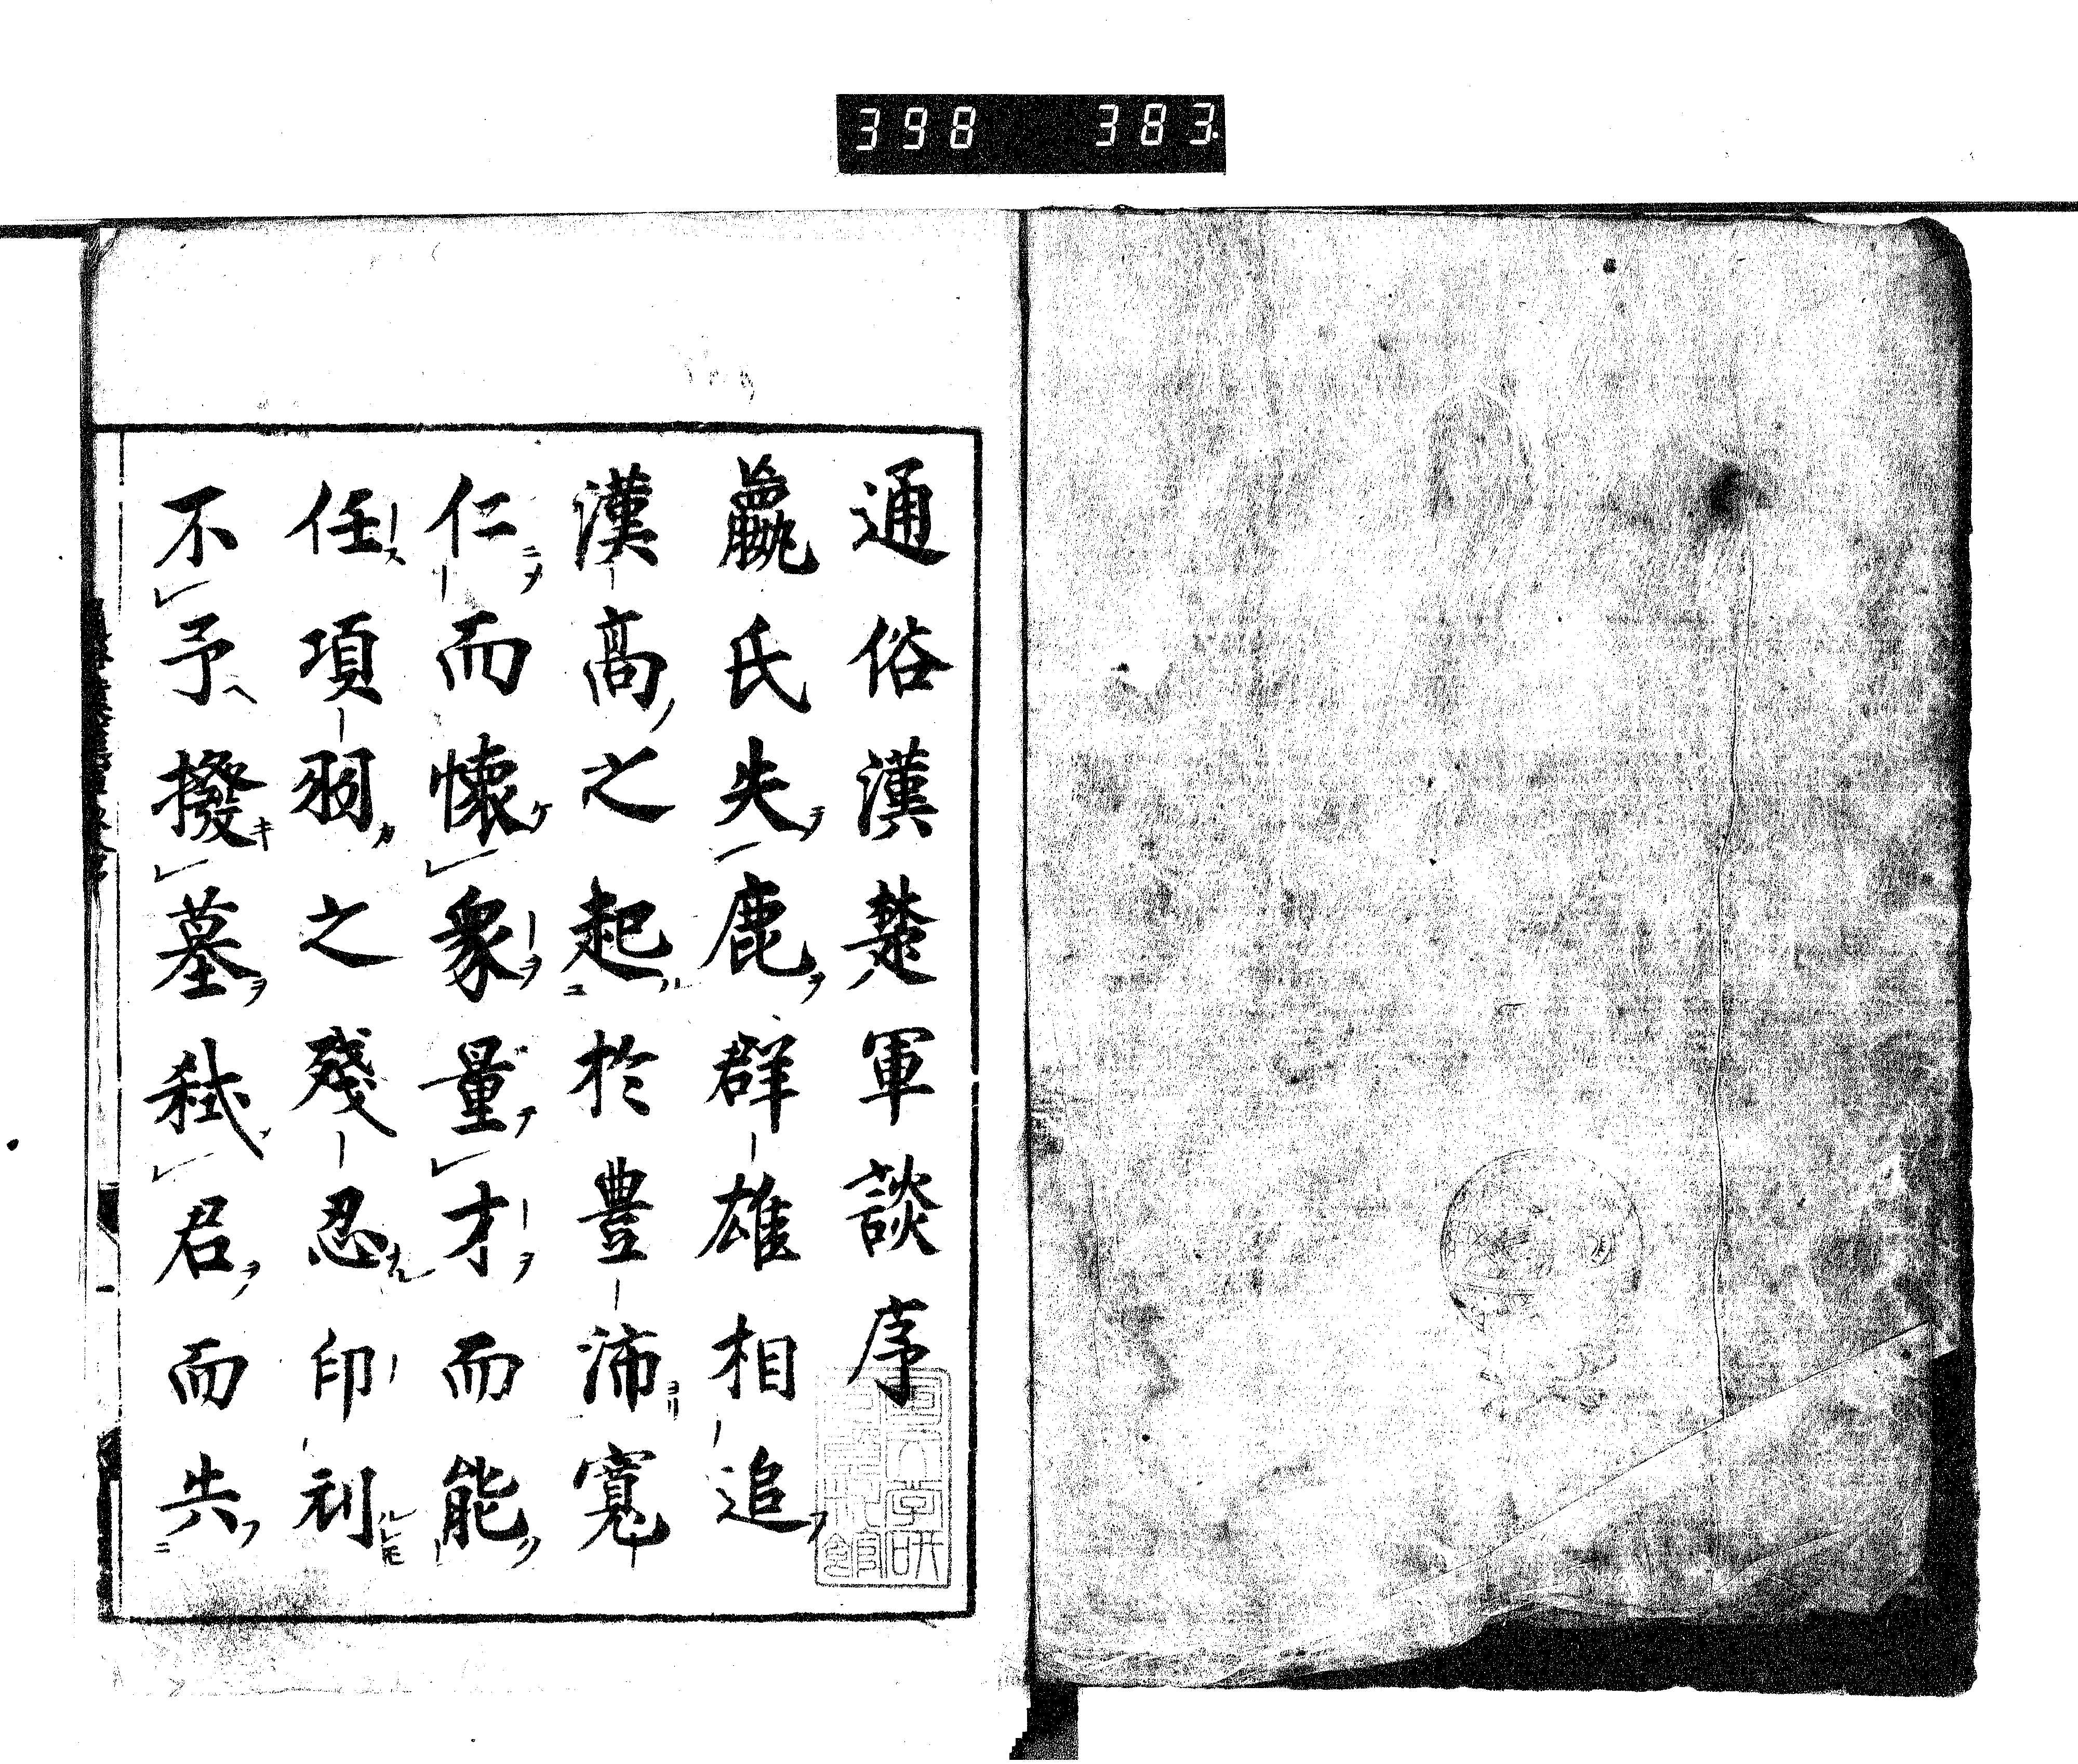 398 383
通俗漢楚軍談序
嬴氏失鹿群雄相追
漢高之起於豊沛寬
仁而懷衆量才而能
任項羽之殘忍印刓
不予撥墓弒君而失